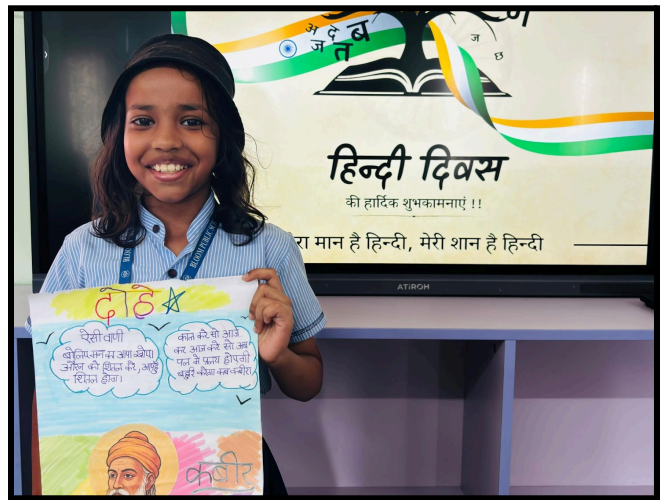 अ दे ब
ज त
ण
ज
छ
हिन्दी दिवस
की हार्दिक शुभकामनाएं !!
रा मान है हिन्दी, मेरी शान है हिन्दी
ATiROH
BLOOM PUBLIC
BLOOM
दोहे
ऐसी वाणी
औरन को शितल करे, आपहुँ
शितल होय।
काल करे सो आज
कर आज करे सो अब
पल में प्रलय होएगी
बहुरि करेगा कब कबीरा
कबीर